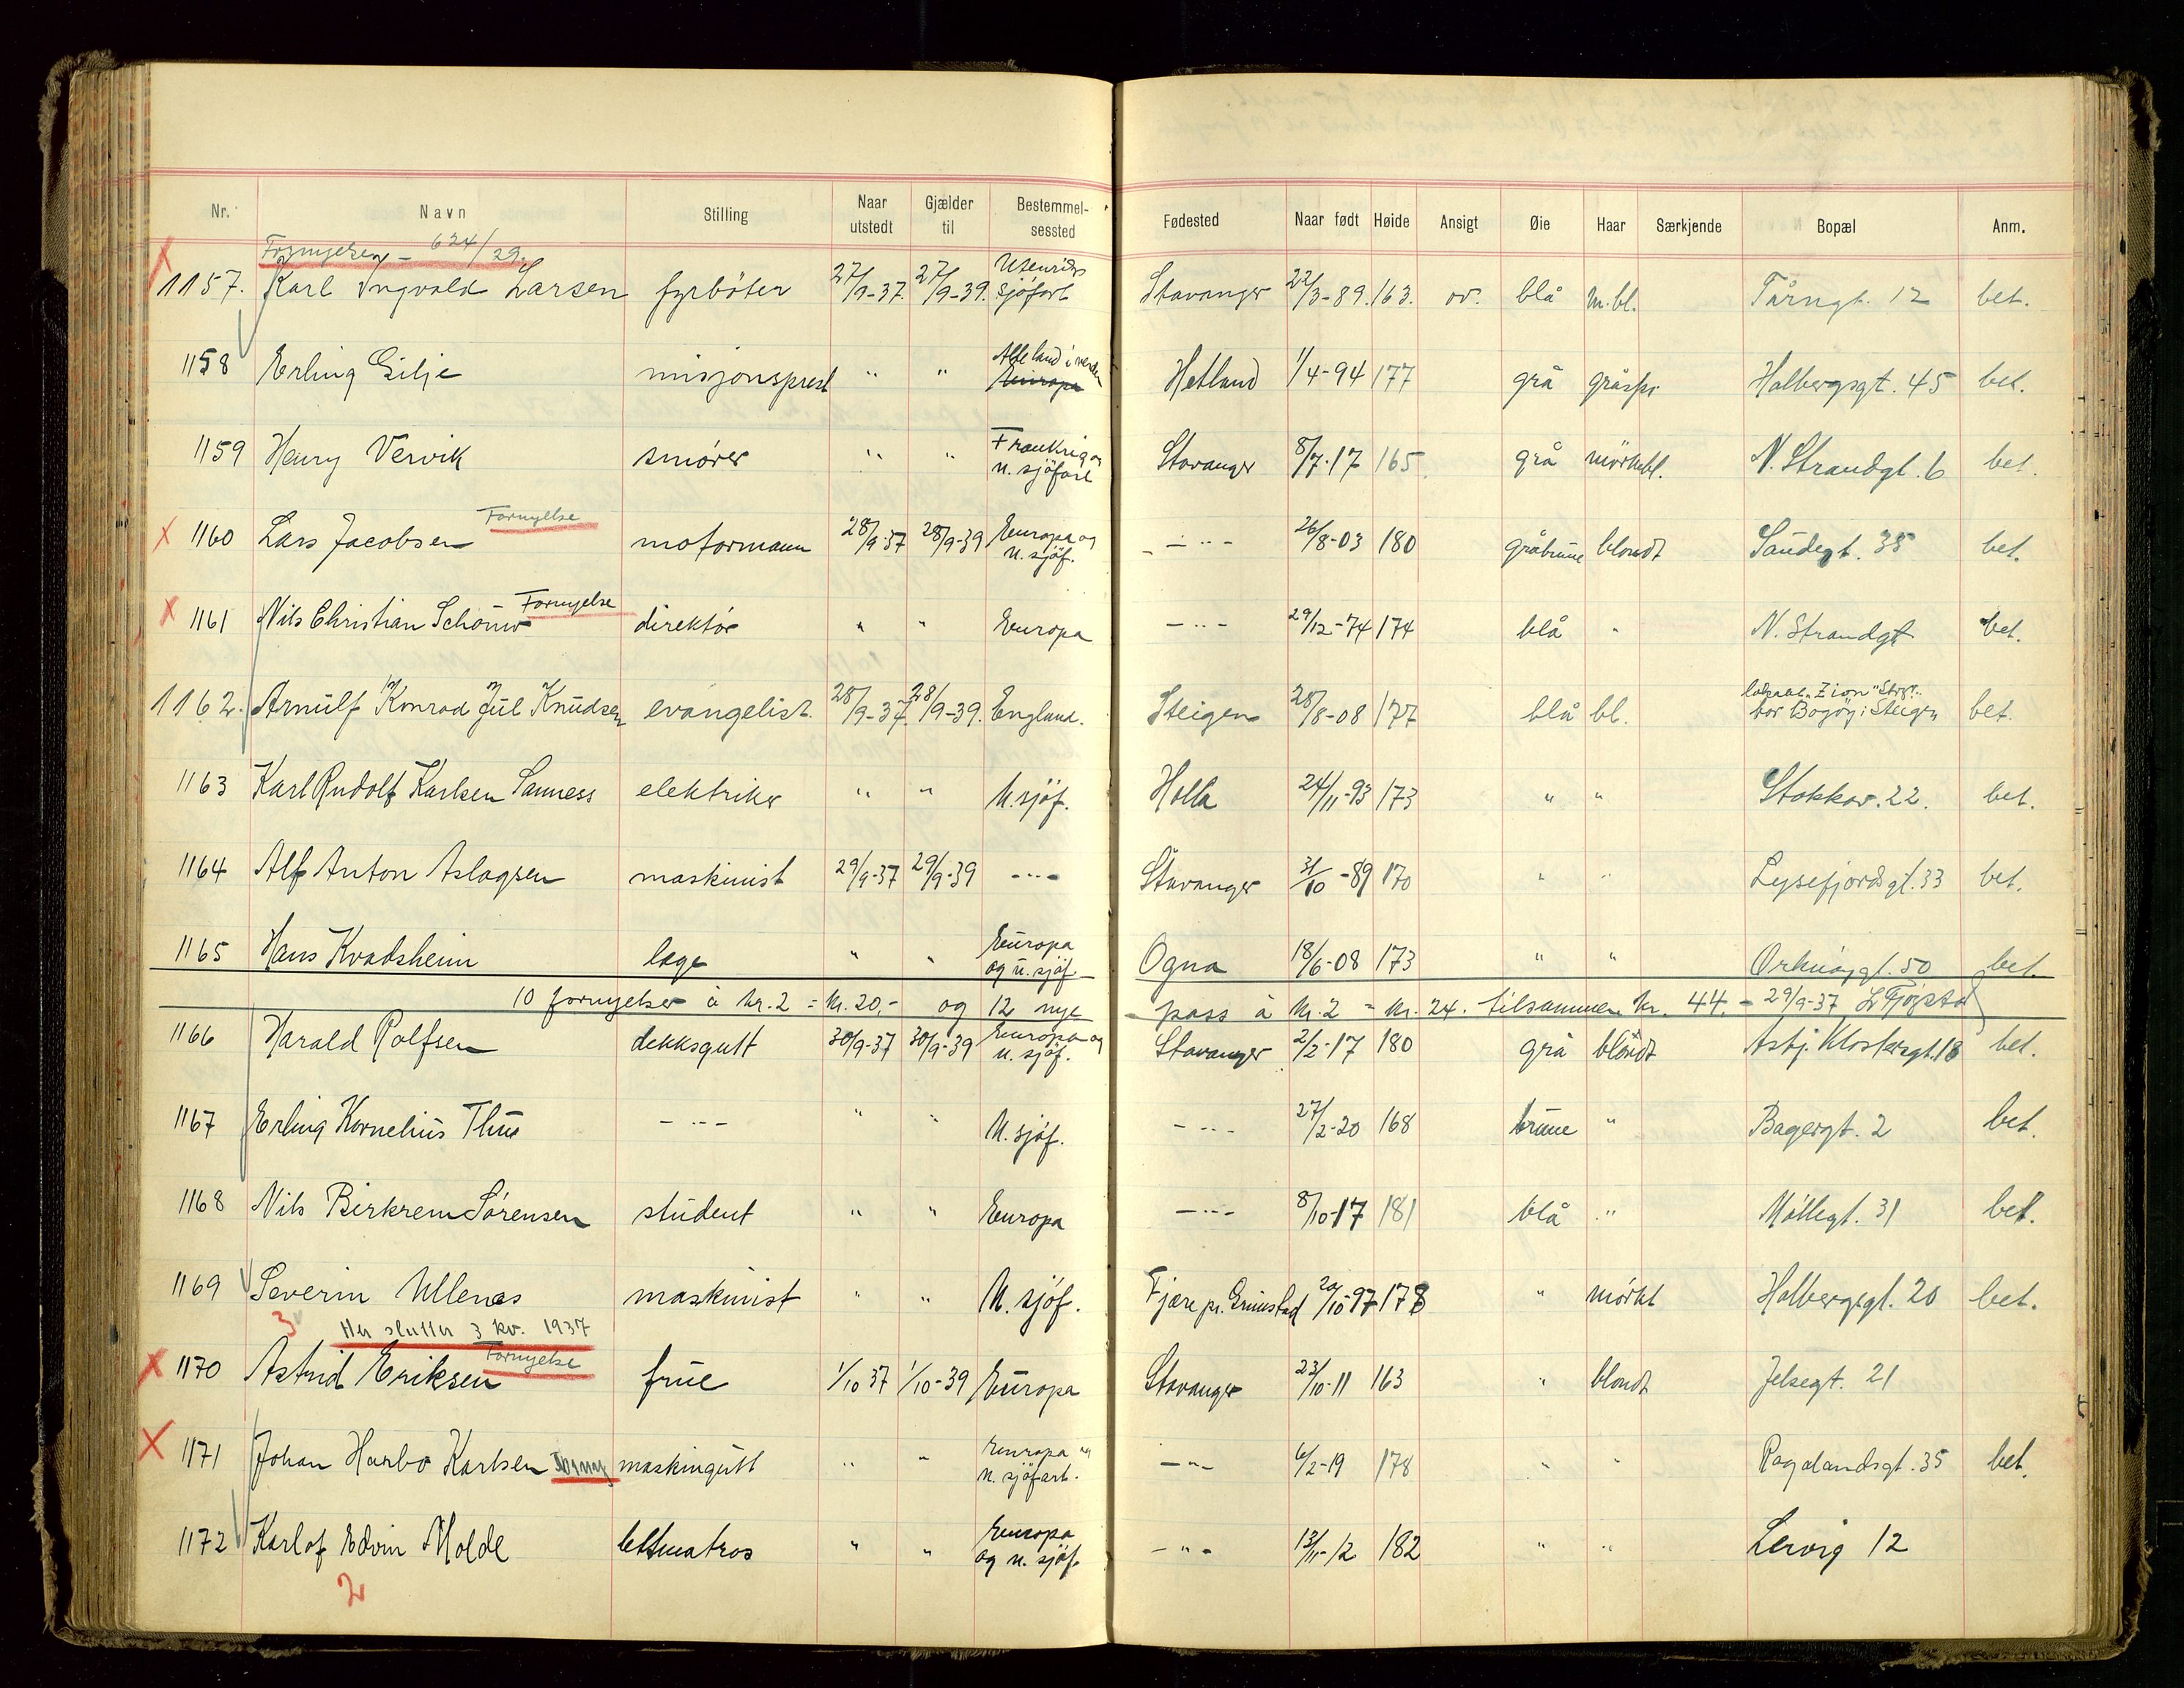 Nr. Navn Stilling Naar utstedt Gjælder til Bestemmelsessted Fødested Naar født Høide Ansigt Øie Haar Særkjende Bopæl Anm.
Fornyelse - 624/29.
1157. Karl Ingvald Larsen fyrböter 27/9-37. 27/9-39. Utenriks sjöfart Stavanger 22/3-89. 163. ov. blå m.bl. Tårngt. 12 bet.
1158 Erling Gilje misjonsprest " " Alle land i verden Europa Hetland 1/4-94 177 grå gråspr. Holbergsgt. 45 bet.
1159 Henry Vervik smører " " Frankrig og u. sjöfart Stavanger 8/7-17 165. grå mörkebl. N. Strandgt. 6 bet.
1160 Lars Jacobsen Fornyelse motormann 28/9-37 28/9-39 Europa og u. sjöf. - " - 26/8-03 180 gråbrune blondt Sandegt. 35 bet.
1161 Nils Christian Fornyelse direktör " " Europa - " - 29/12-74 174 blå " N. Strandgt bet.
1162. Arnulf Konrad Jul Knudsen evangelist. 28/9-37. 28/9-39. England. Steigen 28/8-08 177 blå bl. "Zion" bor Bogöy i Steigen bet.
1163 Karl Rudolf Karlsen Sanness elektriker " " U. sjöf. Holla 24/11-93 173 " " Stokkav. 22. bet.
1164 Alf Anton Aslagsen maskinist 29/9-37 29/9-39 - " - Stavanger 31/10-89 170 " " Lysefjordsgt. 33 bet.
1165 Hans Kvadsheim lege " " Europa og u. sjöf. Ogna 18/6-08 173 " " Orknöygt. 50 bet.
10 fornyelser à kr. 2 = kr. 20,- og 12 nye pass à kr. 2 = kr. 24. tilsammen kr. 44,- 29/9-37
1166 Harald Rolfsen dekksgutt 30/9-37 30/9-39 Europa og u. sjöf. Stavanger 2/2-17 180 grå blondt Asbj. Klostersgt. 18 bet.
1167 Erling Kornelius Thu - " - " " U. sjöf. - " - 27/2-20 168 brune " Bagergt. 2 bet.
1168 Nils Birkrem Sörensen student " " Europa - " - 8/10-17 181 blå " Möllegt. 31 bet.
1169 Severin Ullenes maskinist " " U. sjöf. Fjære pr. Grimstad 20/10-97 178 " mörkt Holbergsgt. 20 bet.
3 Her slutter 3 kv. 1937
1170 Astrid Eriksen Fornyelse frue 1/10 37 1/10-39 Europa Stavanger 23/10-11 163 " blondt Jelsegt. 21
1171 Johan Harbo Karlsen maskingutt " " Europa og u. sjöfart. - " - 6/2-19 178 " " Rogalandsgt. 35 bet.
1172 Karlof Edvin Molde lettmatros " " Europa og u. sjöf. - " - 13/11-12 182 " " Lervig 12
2